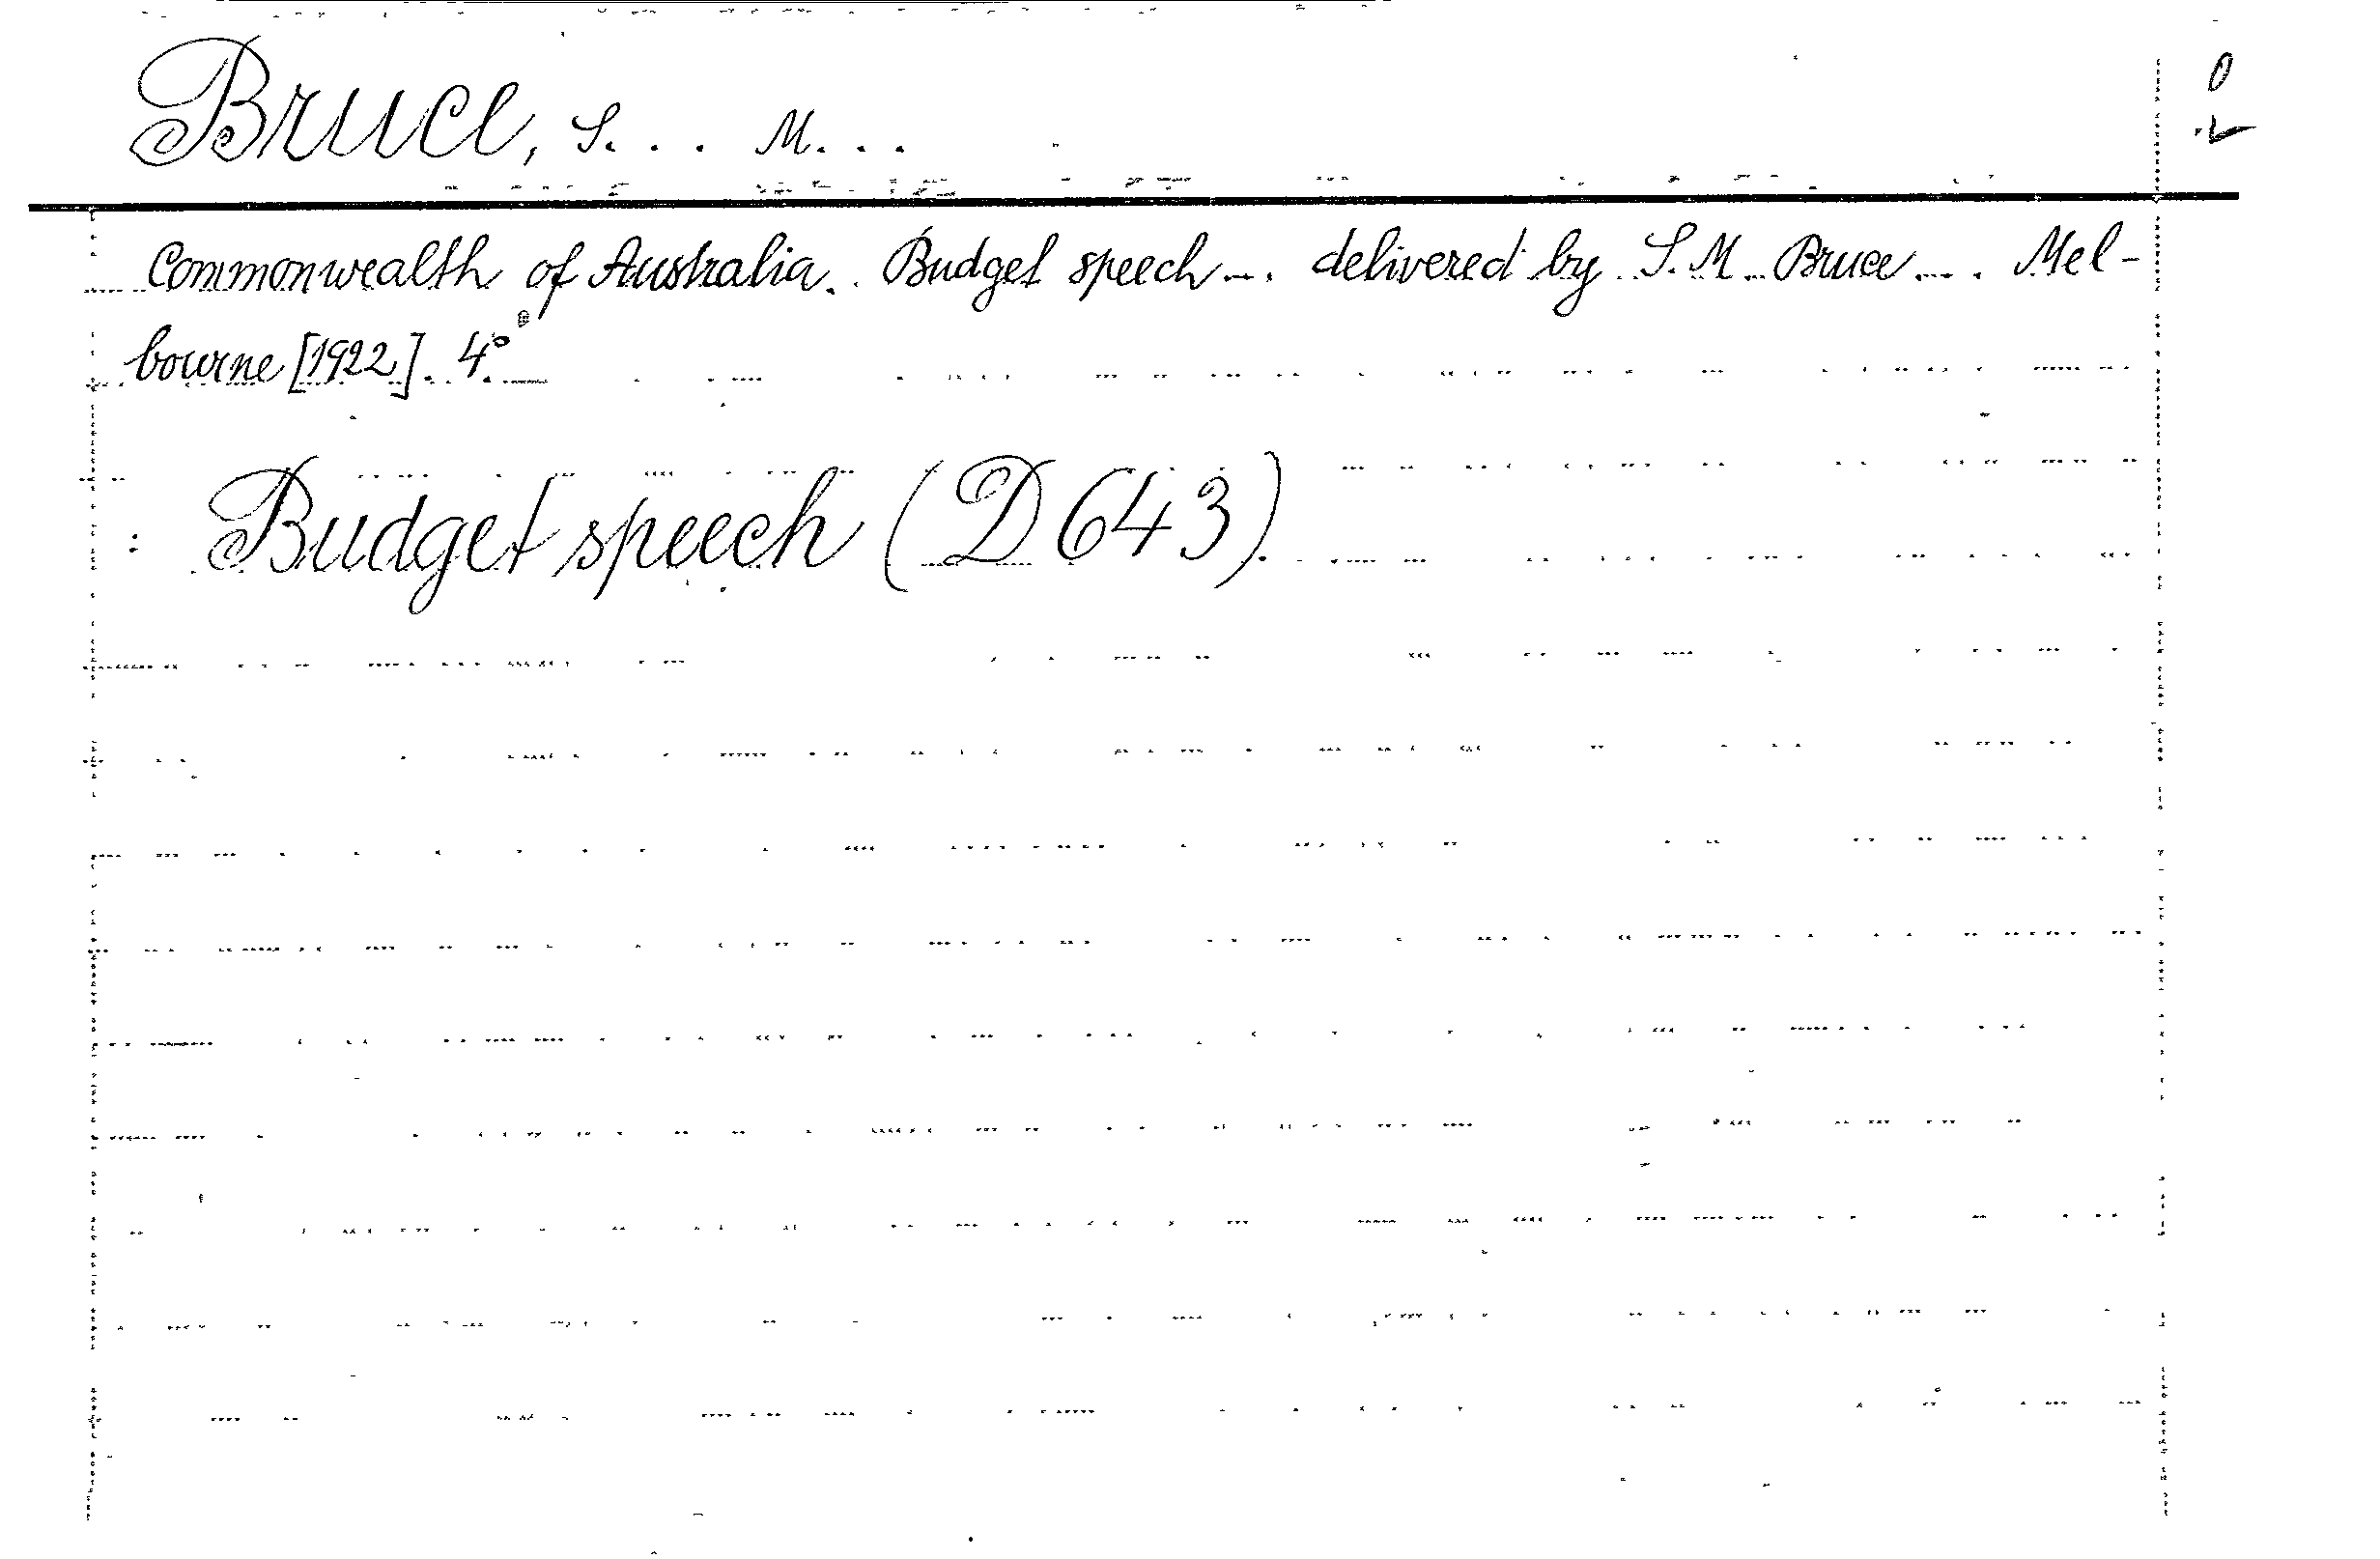 Bruce, S... M...
Commonwealth of Australia. Budget speech... delivered by S. M. Bruce.... Mel-
bourne [1922]. 4.°
: Budget speech (D 643).